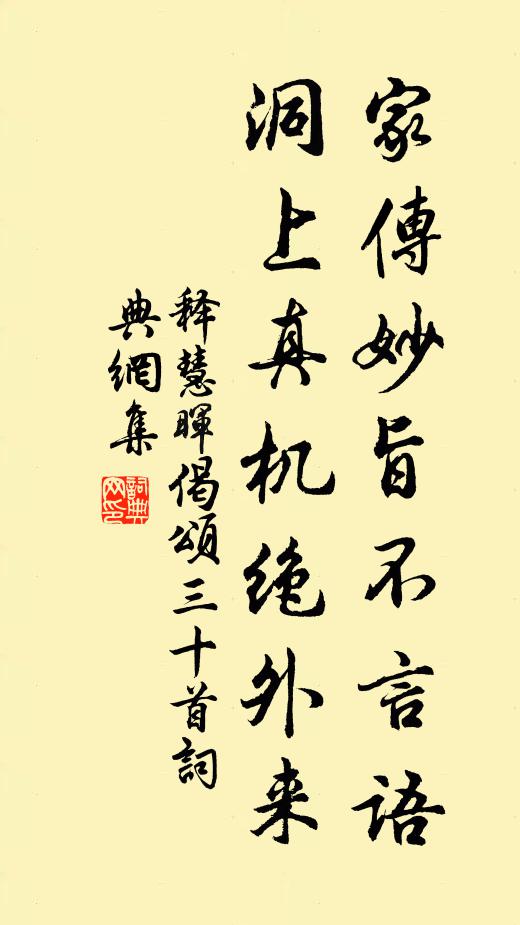 家傳妙旨不言语
洞上真机绝外来
释慧暉偈頌三十首詞
典網集
詞典
网印